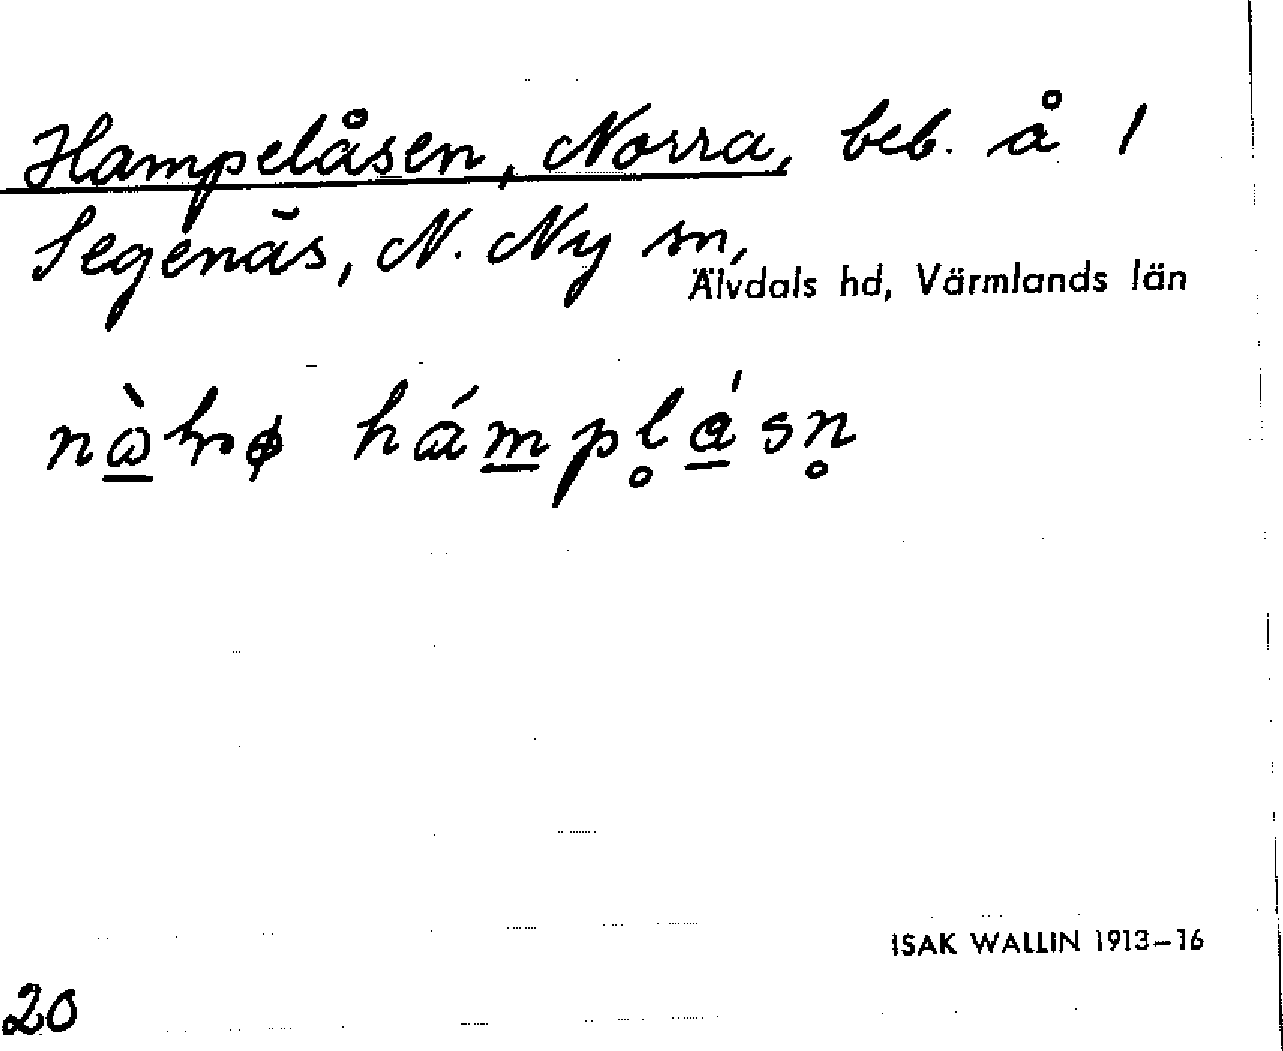 Hampelåsen, Norra, beb. å 1
Segenäs, N. Ny sn,
Älvdals hd, Värmlands län
hámpl̥á̱sn̥
ISAK WALLIN 1913–16
20